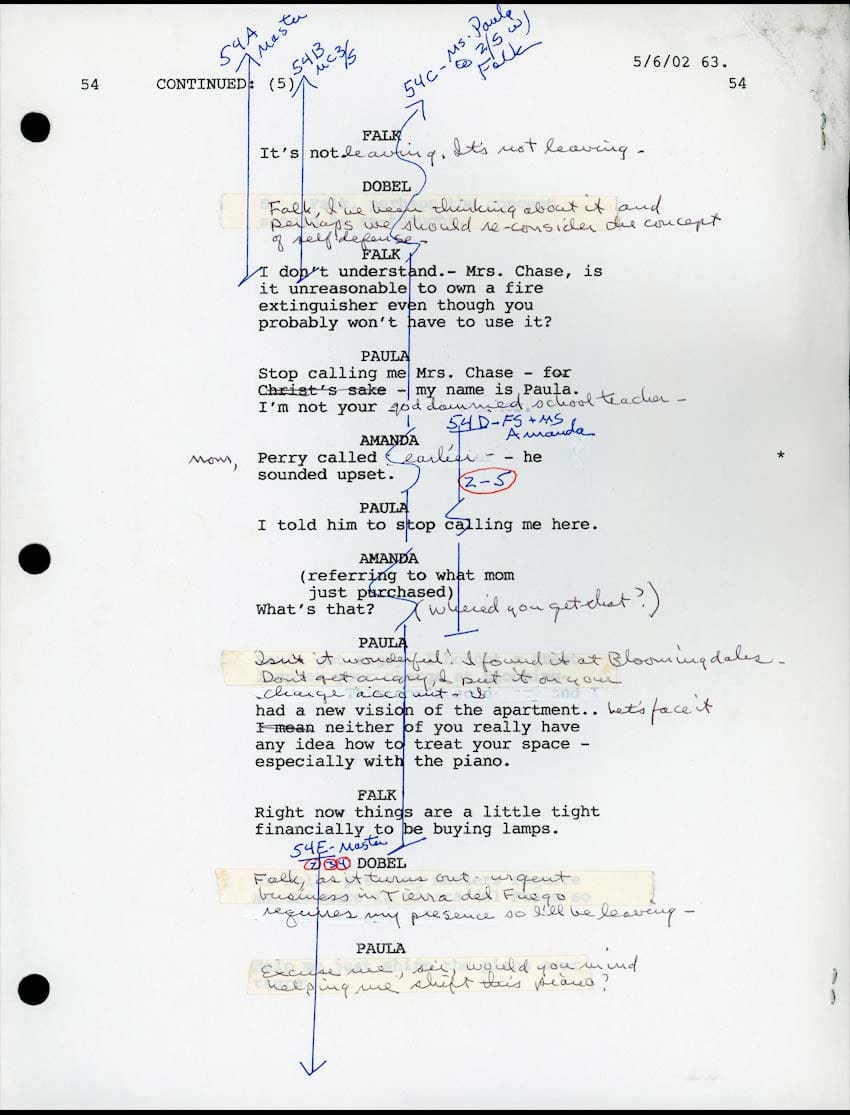 54A
Master
54B
MC3/5
54C - Ms. Paula
@ 2/5 w)
Falk
5/6/02 63.
54 CONTINUED: (5) 54
FALK
It's not leaving. It's not leaving -
DOBEL
Falk, I've been thinking about it and
perhaps we should re-consider the concept
of self defense -
FALK
I don't understand.- Mrs. Chase, is
it unreasonable to own a fire
extinguisher even though you
probably won't have to use it?
PAULA
Stop calling me Mrs. Chase - for
Christ's sake - my name is Paula.
I'm not your god dammed school teacher -
54D - FS + MS
Amanda
AMANDA
Mom, Perry called earlier - - he *
sounded upset.
2-5
PAULA
I told him to stop calling me here.
AMANDA
(referring to what mom
just purchased)
What's that? (Where'd you get that?)
PAULA
Isn't it wonderful! I found it at Bloomingdales -
Don't get angry, I put it on your
charge account - I
had a new vision of the apartment.. Let's face it
I mean neither of you really have
any idea how to treat your space -
especially with the piano.
FALK
Right now things are a little tight
financially to be buying lamps.
54E - Master
2 3 4 DOBEL
Falk, as it turns out, urgent
business in Tierra del Fuego
requires my presence so I'll be leaving -
PAULA
Excuse me, sir, would you mind
helping me shift this piano?